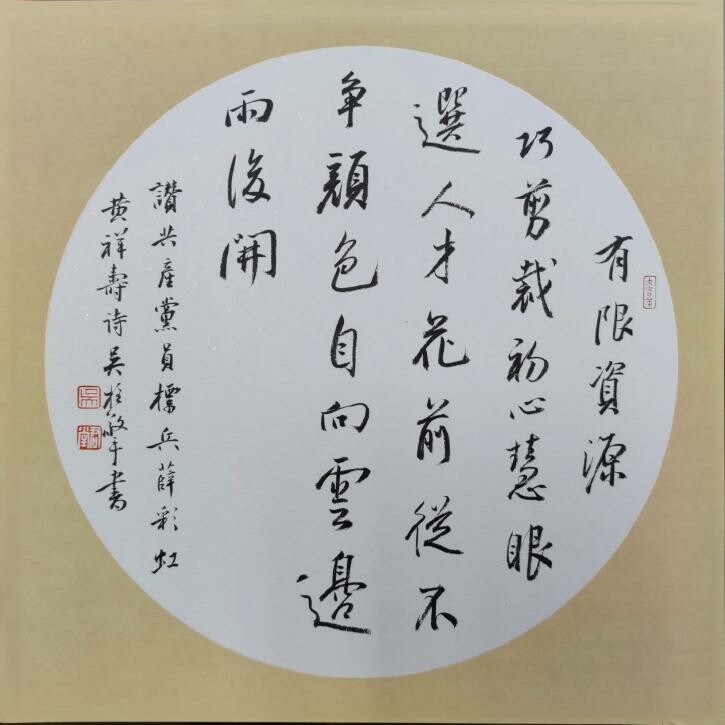 有限資源
巧剪裁初心慧眼
選人才花前從不
争顔色自向雲邊
雨後開
讃共產黨員標兵薛彩虹
黄祥壽诗吴柱敬书